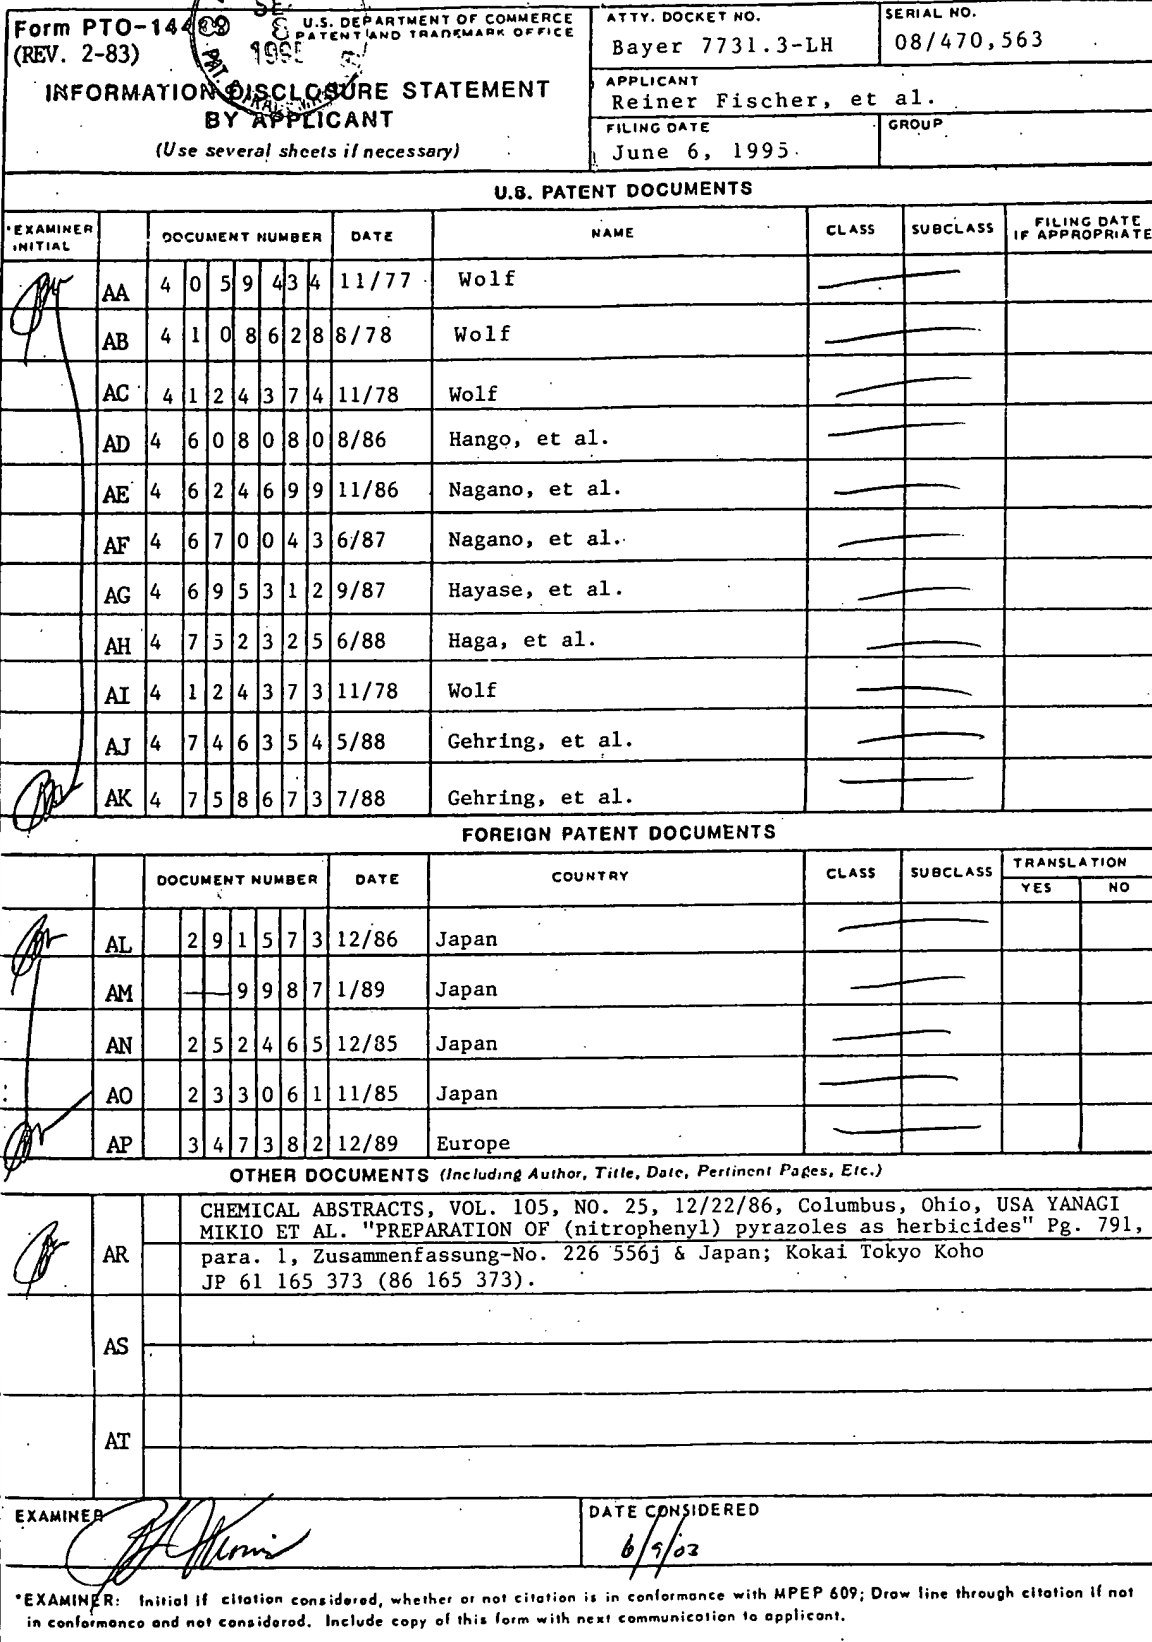 Form PTO-1449 U.S. DEPARTMENT OF COMMERCE
(REV. 2-83) PATENT AND TRADEMARK OFFICE
INFORMATION DISCLOSURE STATEMENT
BY APPLICANT
(Use several sheets if necessary)
ATTY. DOCKET NO.
Bayer 7731.3-LH
SERIAL NO.
08/470,563
APPLICANT
Reiner Fischer, et al.
FILING DATE
June 6, 1995
GROUP
U.S. PATENT DOCUMENTS
*EXAMINER INITIAL DOCUMENT NUMBER DATE NAME CLASS SUBCLASS FILING DATE IF APPROPRIATE
AA 4 0 5 9 4 3 4 11/77 Wolf
AB 4 1 0 8 6 2 8 8/78 Wolf
AC 4 1 2 4 3 7 4 11/78 Wolf
AD 4 6 0 8 0 8 0 8/86 Hango, et al.
AE 4 6 2 4 6 9 9 11/86 Nagano, et al.
AF 4 6 7 0 0 4 3 6/87 Nagano, et al.
AG 4 6 9 5 3 1 2 9/87 Hayase, et al.
AH 4 7 5 2 3 2 5 6/88 Haga, et al.
AI 4 1 2 4 3 7 3 11/78 Wolf
AJ 4 7 4 6 3 5 4 5/88 Gehring, et al.
AK 4 7 5 8 6 7 3 7/88 Gehring, et al.
FOREIGN PATENT DOCUMENTS
DOCUMENT NUMBER DATE COUNTRY CLASS SUBCLASS TRANSLATION
YES NO
AL 2 9 1 5 7 3 12/86 Japan
AM 9 9 8 7 1/89 Japan
AN 2 5 2 4 6 5 12/85 Japan
AO 2 3 3 0 6 1 11/85 Japan
AP 3 4 7 3 8 2 12/89 Europe
OTHER DOCUMENTS (Including Author, Title, Date, Pertinent Pages, Etc.)
CHEMICAL ABSTRACTS, VOL. 105, NO. 25, 12/22/86, Columbus, Ohio, USA YANAGI
MIKIO ET AL. "PREPARATION OF (nitrophenyl) pyrazoles as herbicides" Pg. 791,
AR para. 1, Zusammenfassung-No. 226 556j & Japan; Kokai Tokyo Koho
JP 61 165 373 (86 165 373).
AS
AT
EXAMINER
DATE CONSIDERED
6/9/03
*EXAMINER: Initial if citation considered, whether or not citation is in conformance with MPEP 609; Draw line through citation if not
in conformance and not considered. Include copy of this form with next communication to applicant.